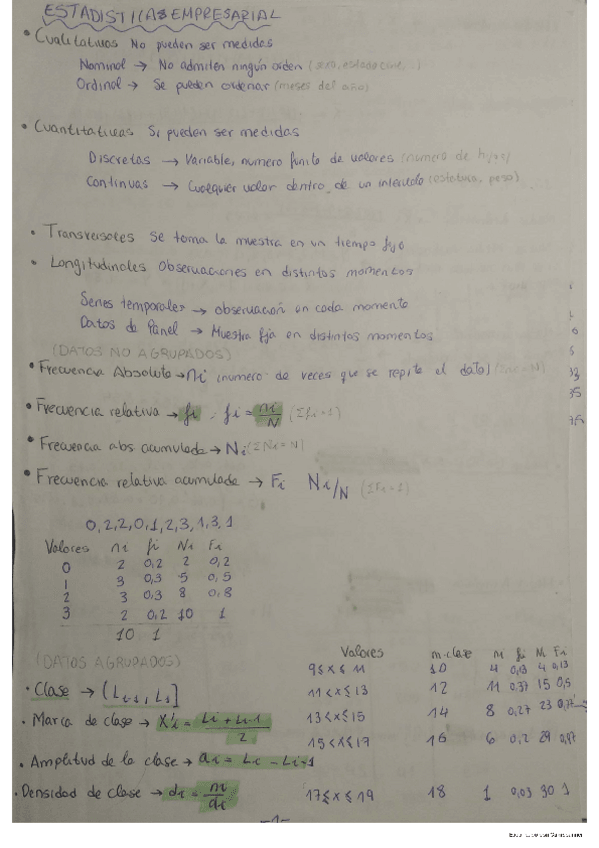 ESTADISTICAS EMPRESARIAL
• Cualitativas No pueden ser medidas
Nominal → No admiten ningún orden (sexo, estado civil...)
Ordinal → Se pueden ordenar (meses del año)
• Cuantitativas Si pueden ser medidas
Discretas → Variable, numero finito de valores (numero de hijos)
Continuas → Cualquier valor dentro de un intervalo (estatura, peso)
• Transversales Se toma la muestra en un tiempo fijo
• Longitudinales Observaciones en distintos momentos
Series temporales → observación en cada momento
Datos de Panel → Muestra fija en distintos momentos
(DATOS NO AGRUPADOS)
• Frecuencia Absoluta → ni (numero de veces que se repite el dato) (Σni = N)
• Frecuencia relativa → fi , fi = ni/N (Σfi = 1)
• Frecuencia abs acumulada → Ni (ΣNi = N)
• Frecuencia relativa acumulada → Fi Ni/N (ΣFi = 1)
0, 2, 2, 0, 1, 2, 3, 1, 3, 1
Valores ni fi Ni Fi
0 2 0,2 2 0,2
1 3 0,3 5 0,5
2 3 0,3 8 0,8
3 2 0,2 10 1
10 1
(DATOS AGRUPADOS)
• Clase → (Li-1, Li]
• Marca de clase → X'i = Li + Li-1 / 2
• Amplitud de la clase → ai = Li - Li-1
• Densidad de clase → di = ni/ai
Valores m.clase ni fi Ni Fi
9 ≤ x ≤ 11 10 4 0,13 4 0,13
11 < x ≤ 13 12 11 0,37 15 0,5
13 < x ≤ 15 14 8 0,27 23 0,77
15 < x ≤ 17 16 6 0,2 29 0,97
17 ≤ x ≤ 19 18 1 0,03 30 1
-1-